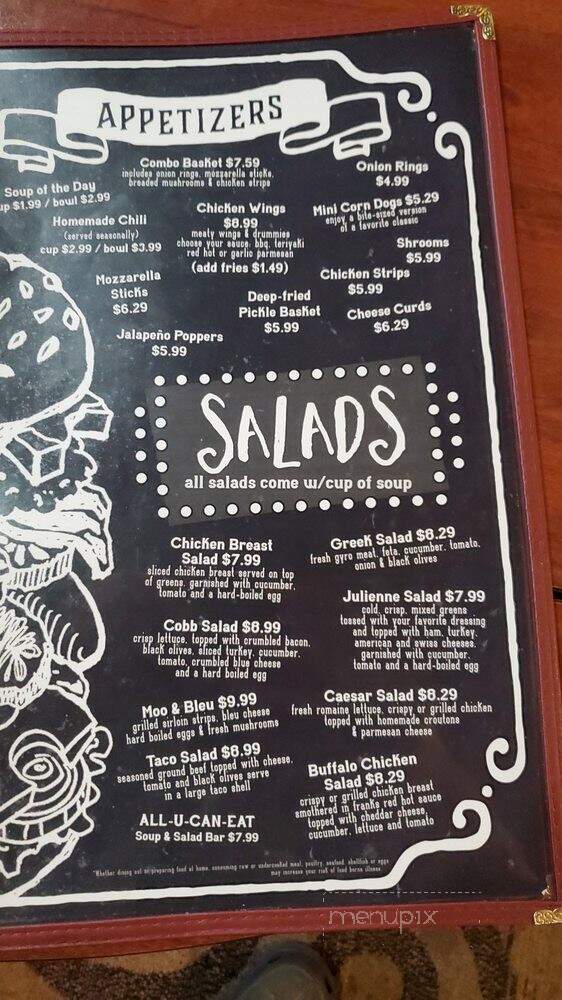 APPETIZERS
Combo Basket $7.59
includes onion rings, mozzarella sticks,
breaded mushrooms & chicken strips
Onion Rings
$4.99
Soup of the Day
up $1.99 / bowl $2.99
Chicken Wings
$8.99
meaty wings & drummies
choose your sauce: bbq, teriyaki
red hot or garlic parmesan
(add fries $1.49)
Mini Corn Dogs $5.29
enjoy a bite-sized version
of a favorite classic
Homemade Chili
(served seasonally)
cup $2.99 / bowl $3.99
Shrooms
$5.99
Mozzarella
Sticks
$6.29
Chicken Strips
$5.99
Deep-fried
Pickle Basket
$5.99
Cheese Curds
$6.29
Jalapeño Poppers
$5.99
SALADS
all salads come w/cup of soup
Chicken Breast
Salad $7.99
sliced chicken breast served on top
of greens, garnished with cucumber,
tomato and a hard-boiled egg
Greek Salad $8.29
fresh gyro meat, feta, cucumber, tomato,
onion & black olives
Julienne Salad $7.99
cold, crisp, mixed greens
tossed with your favorite dressing
and topped with ham, turkey,
american and swiss cheeses,
garnished with cucumber,
tomato and a hard-boiled egg
Cobb Salad $8.99
crisp lettuce, topped with crumbled bacon,
black olives, sliced turkey, cucumber,
tomato, crumbled blue cheese
and a hard boiled egg
Moo & Bleu $9.99
grilled sirloin strips, bleu cheese
hard boiled eggs & fresh mushrooms
Caesar Salad $8.29
fresh romaine lettuce, crispy or grilled chicken
topped with homemade croutons
& parmesan cheese
Taco Salad $8.99
seasoned ground beef topped with cheese,
tomato and black olives serve
in a large taco shell
Buffalo Chicken
Salad $8.29
crispy or grilled chicken breast
smothered in franks red hot sauce
topped with cheddar cheese,
cucumber, lettuce and tomato
ALL-U-CAN-EAT
Soup & Salad Bar $7.99
*Whether dining out or preparing food at home, consuming raw or undercooked meat, poultry, seafood, shellfish or eggs
may increase your risk of food borne illness.
menupix